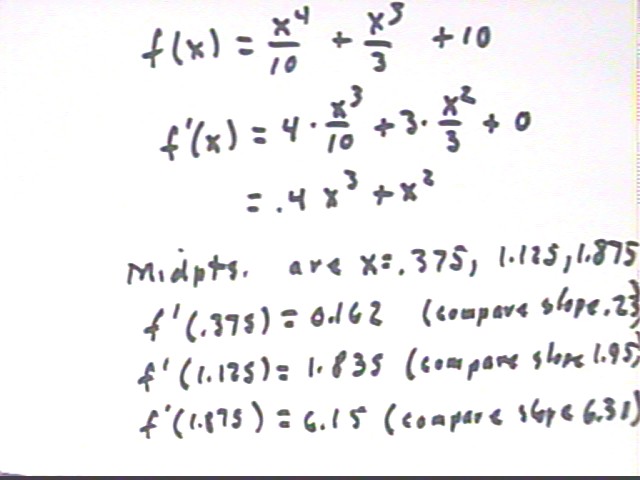 f(x) = x^4/10 + x^3/3 + 10
f'(x) = 4 · x^3/10 + 3 · x^2/3 + 0
= .4 x^3 + x^2
Midpts. are x = .375, 1.125, 1.875
f'(.375) = 0.162 (compare slope .23)
f'(1.125) = 1.835 (compare slope 1.95)
f'(1.875) = 6.15 (compare slope 6.31)